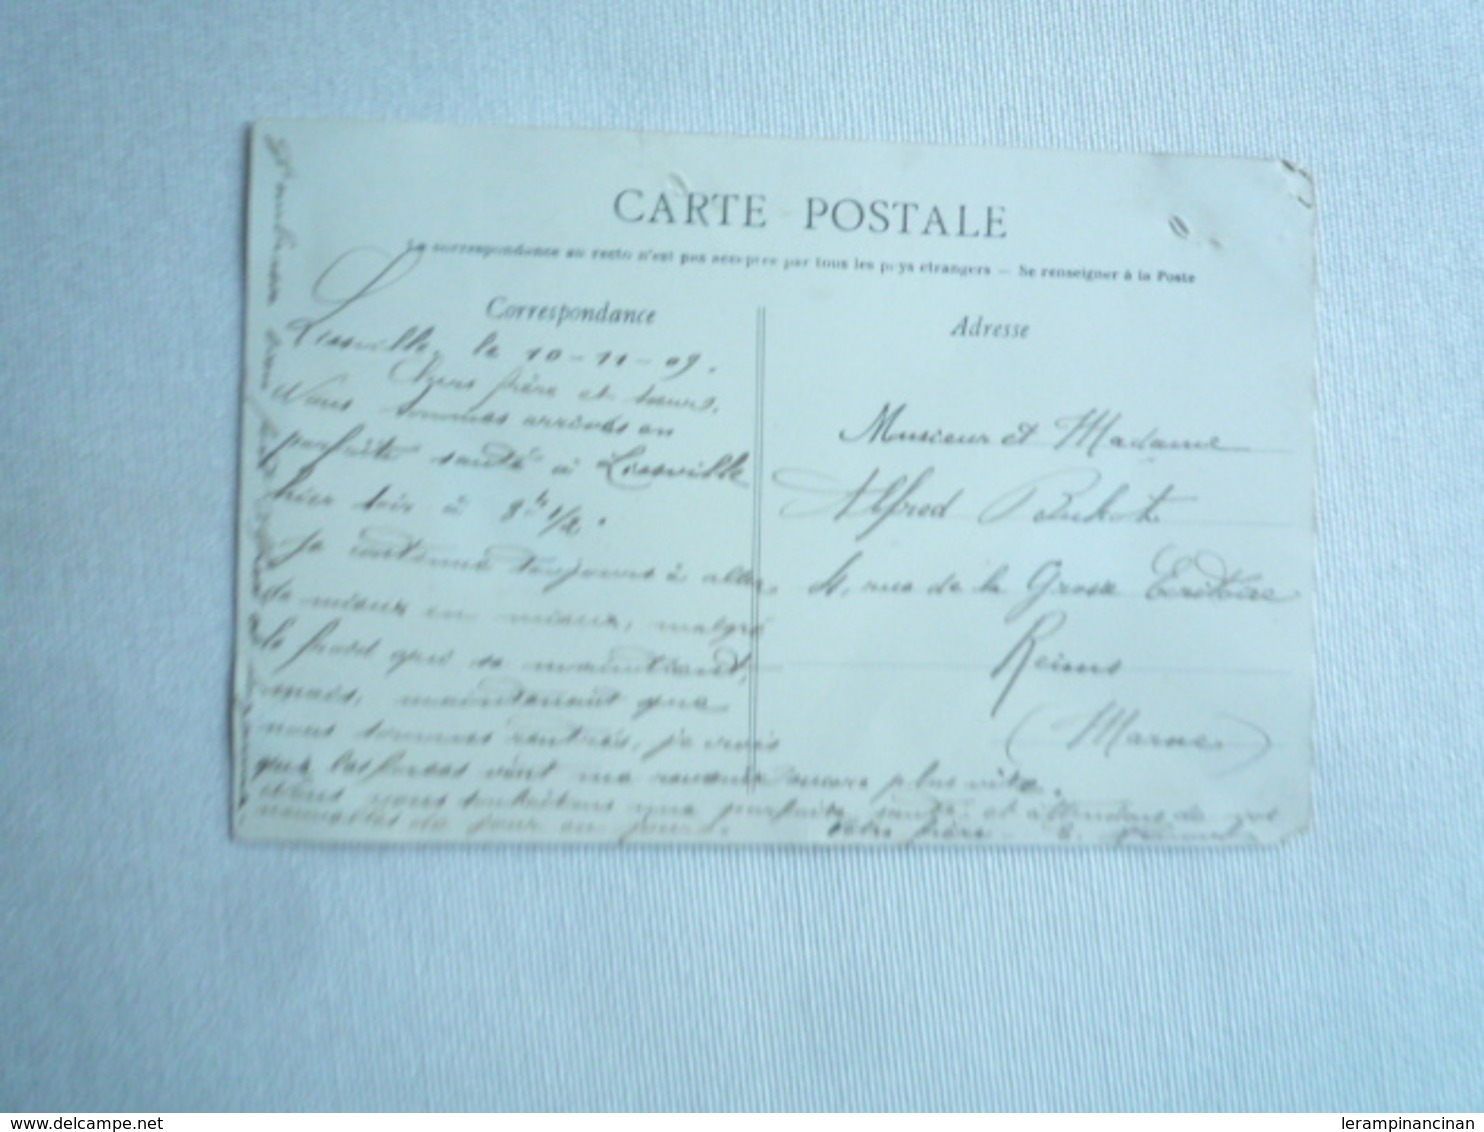 CARTE POSTALE
La correspondance au recto n'est pas acceptée par tous les pays étrangers — Se renseigner à la Poste
Correspondance
le 10-11-09.
Chers frère et sœurs,
Nous sommes arrivés en
parfaite santé à
hier soir à 8h 1/2.
Je continue toujours à aller
de mieux en mieux, malgré
le froid qui se maintient,
mais, maintenant que
nous sommes rentrés, je crois
que les forces vont me revenir encore plus vite.
Nous vous souhaitons une parfaite santé et attendons de vos
nouvelles de jour en jour. Votre frère E.
Adresse
Monsieur et Madame
Alfred
4, rue de la Grosse Ecritoire
Reims
(Marne)
www.delcampe.net
lerampinancinan